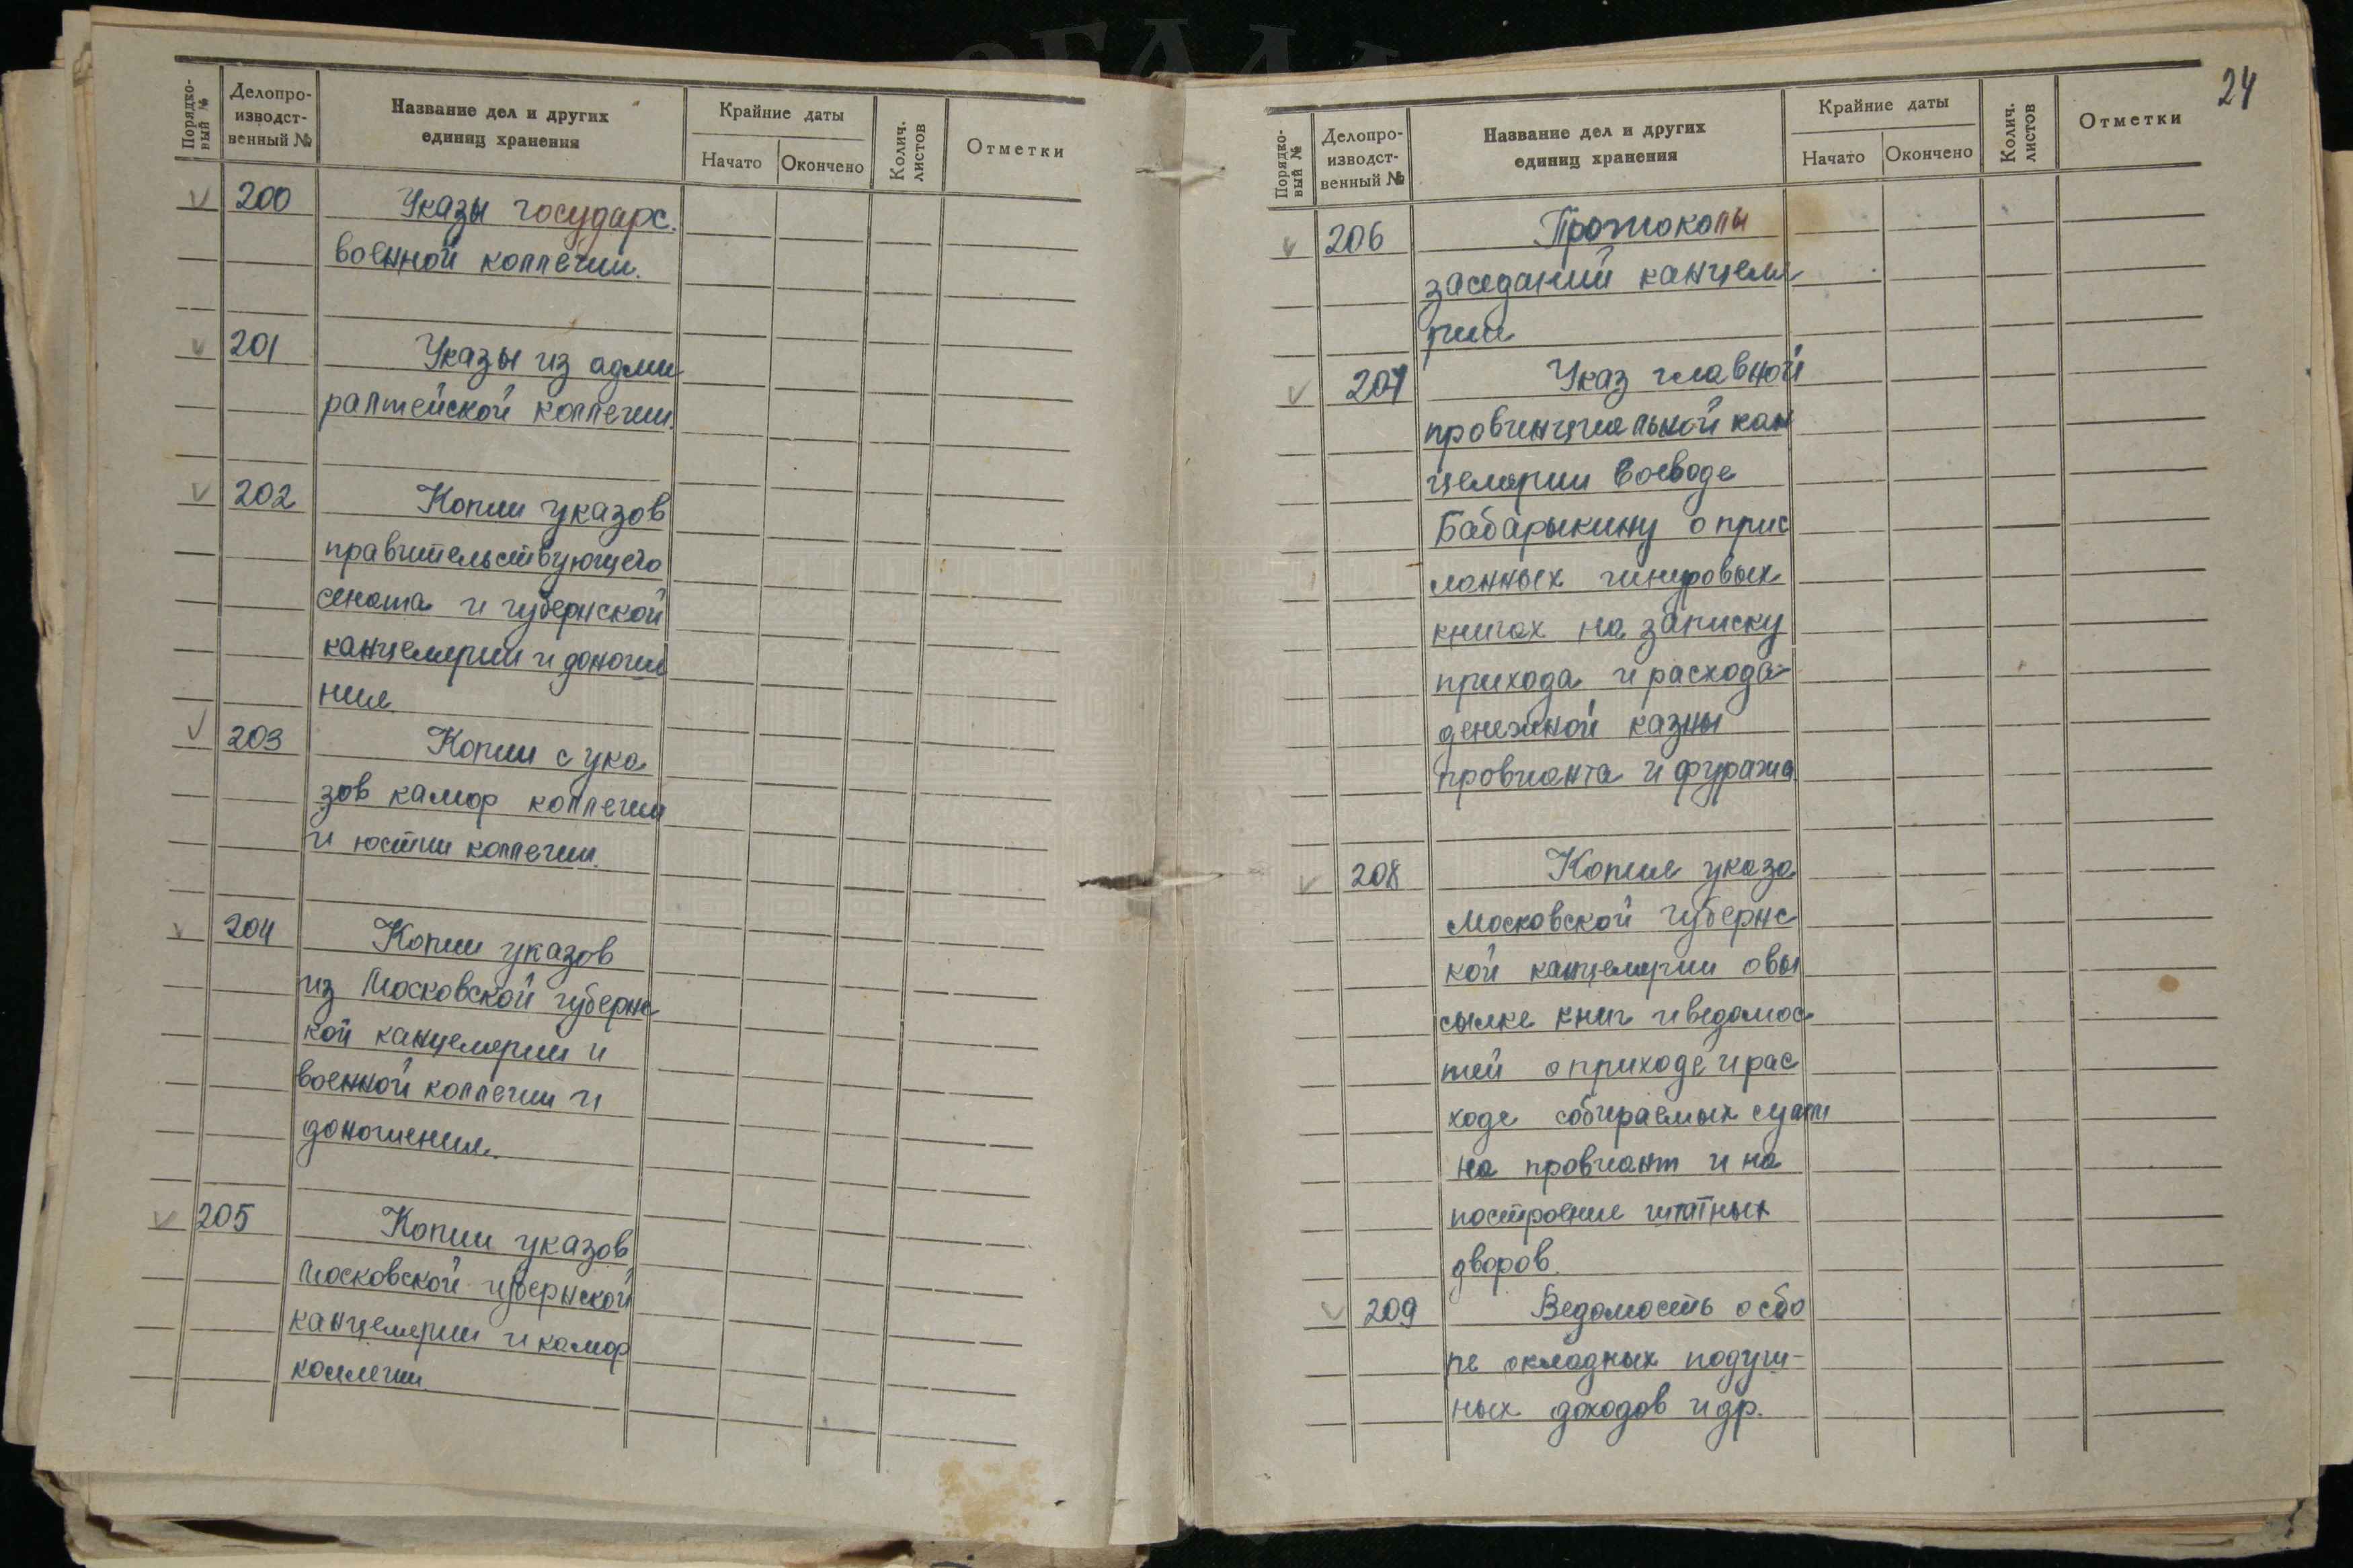 Порядко-
вый №
Делопро-
изводст-
венный №
Название дел и других
единиц хранения
Крайние даты
Начато
Окончено
Колич.
листов
Отметки
200 Указы государс.
военной коллегии.
201 Указы из адми
ралтейской коллегии.
202 Копии указов
правительствующего
сената и губернской
канцелярии и доноше
ния.
203 Копии с ука
зов камор коллегии
и юстиц коллегии.
204 Копии указов
из Московской губернс
кой канцелярии и
военной коллегии и
доношения.
205 Копии указов
Московской губернской
канцелярии и камор
коллегии.
24
Порядко-
вый №
Делопро-
изводст-
венный №
Название дел и других
единиц хранения
Крайние даты
Начато
Окончено
Колич.
листов
Отметки
206 Протоколы
заседаний канцеля
рии
207 Указ главной
провинциальной кан
целярии воеводе
Бабарыкину о прис
ланных шнуровых
книгах на записку
прихода и расхода
денежной казны
провианта и фуража
208 Копия указа
Московской губернс
кой канцелярии о вы
сылке книг и ведомос
тей о приходе и рас
ходе собираемых сумм
на провиант и на
построение штатных
дворов.
209 Ведомость о сбо
ре окладных подуш-
ных доходов и др.